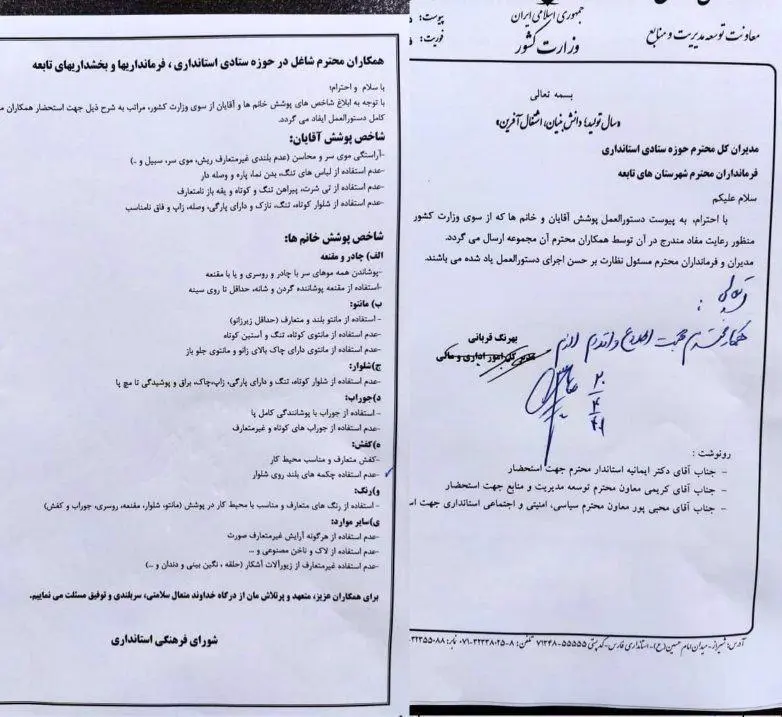 جمهوری اسلامی ایران
وزارت کشور
معاونت توسعه مدیریت و منابع
پیوست:
فوریت:
بسمه تعالی
«سال تولید؛ دانش بنیان، اشتغال آفرین»
مدیران کل محترم حوزه ستادی استانداری
فرمانداران محترم شهرستان های تابعه
سلام علیکم
با احترام، به پیوست دستورالعمل پوشش آقایان و خانم ها که از سوی وزارت کشور
منظور رعایت مفاد مندرج در آن توسط همکاران محترم آن مجموعه ارسال می گردد.
مدیران و فرمانداران محترم مسئول نظارت بر حسن اجرای دستورالعمل یاد شده می باشند.
بهرنگ قربانی
مدیر کل امور اداری و مالی
جهت اطلاع و اقدام لازم
رونوشت :
- جناب آقای دکتر ایمانیه استاندار محترم جهت استحضار
- جناب آقای کریمی معاون محترم توسعه مدیریت و منابع جهت استحضار
- جناب آقای محبی پور معاون محترم سیاسی، امنیتی و اجتماعی استانداری جهت اس
آدرس: شیراز - میدان امام حسین (ع) - استانداری فارس - کدپستی ۵۵۵۵۵-۷۱۳۴۸ تلفن: ۸-۳۲۲۳۸۰۲۵-۰۷۱ نمابر: ۳۲۳۵۵۰۸۸
همکاران محترم شاغل در حوزه ستادی استانداری ، فرمانداریها و بخشداریهای تابعه
با سلام و احترام؛
با توجه به ابلاغ شاخص های پوشش خانم ها و آقایان از سوی وزارت کشور، مراتب به شرح ذیل جهت استحضار همکاران
کامل دستورالعمل ایفاد می گردد.
شاخص پوشش آقایان:
-آراستگی موی سر و محاسن (عدم بلندی غیرمتعارف ریش، موی سر، سبیل و ..)
-عدم استفاده از لباس های تنگ، بدن نما، پاره و وصله دار
-عدم استفاده از تی شرت، پیراهن تنگ و کوتاه و یقه باز نامتعارف
-عدم استفاده از شلوار کوتاه، تنگ، نازک و دارای پارگی، وصله، زاپ و فاق نامناسب
شاخص پوشش خانم ها:
الف) چادر و مقنعه
-پوشاندن همه موهای سر با چادر و روسری و یا با مقنعه
-استفاده از مقنعه پوشاننده گردن و شانه، حداقل تا روی سینه
ب) مانتو:
- استفاده از مانتو بلند و متعارف (حداقل زیرزانو)
-عدم استفاده از مانتوی کوتاه، تنگ و آستین کوتاه
-عدم استفاده از مانتوی دارای چاک بالای زانو و مانتوی جلو باز
ج)شلوار:
-عدم استفاده از شلوار کوتاه، تنگ و دارای پارگی، زاپ،چاک، براق و پوشیدگی تا مچ پا
د)جوراب:
- استفاده از جوراب با پوشانندگی کامل پا
-عدم استفاده از جوراب های کوتاه و غیرمتعارف
ه)کفش:
-کفش متعارف و مناسب محیط کار
-عدم استفاده چکمه های بلند روی شلوار
و)رنگ:
- استفاده از رنگ های متعارف و مناسب با محیط کار در پوشش (مانتو، شلوار، مقنعه، روسری، جوراب و کفش)
ی)سایر موارد:
-عدم استفاده از هرگونه آرایش غیرمتعارف صورت
-عدم استفاده از لاک و ناخن مصنوعی و ...
-عدم استفاده غیرمتعارف از زیورآلات آشکار (حلقه ، نگین بینی و دندان و ...)
برای همکاران عزیز، متعهد و پرتلاش مان از درگاه خداوند متعال سلامتی، سربلندی و توفیق مسئلت می نماییم.
شورای فرهنگی استانداری